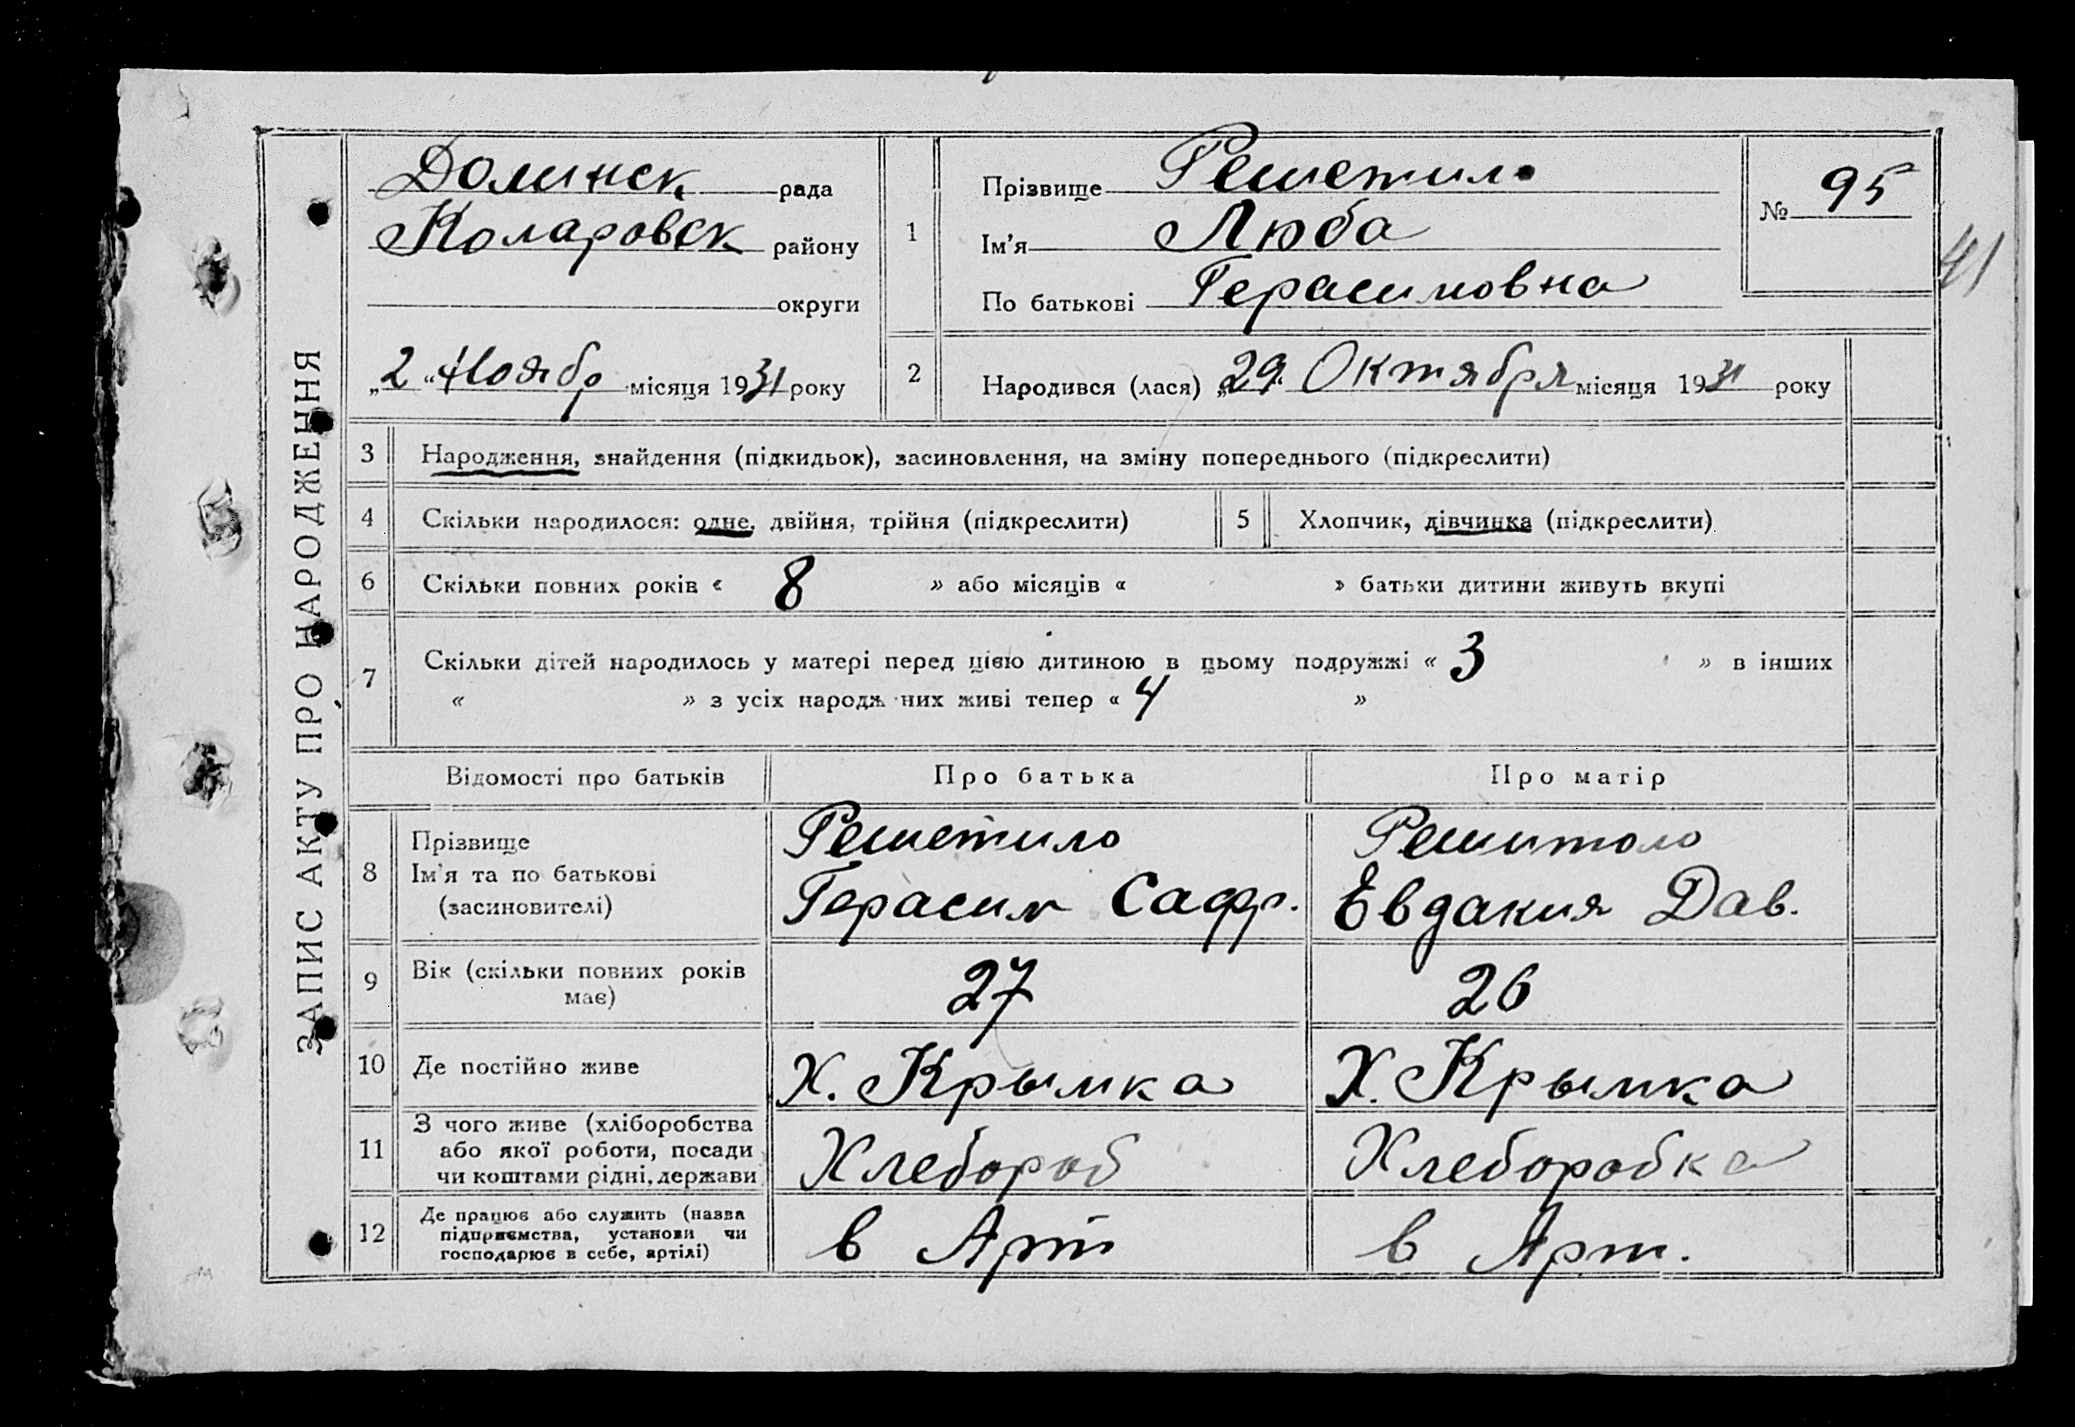 ЗАПИС АКТУ ПРО НАРОДЖЕННЯ
Долинск рада
Коларовск району
округи
„2“ Ноябр місяця 1931 року
1
Прізвище Решетило
Ім’я Люба
По батькові Герасимовна
№ 95
41
2 Народився (лася) „29„ Октября місяця 1931 року
3 Народження, знайдення (підкидьок), засиновлення, на зміну попереднього (підкреслити)
4 Скільки народилося: одне, двійня, трійня (підкреслити) 5 Хлопчик, дівчинка (підкреслити)
6 Скільки повних років « 8 » або місяців « » батьки дитини живуть вкупі
7 Скільки дітей народилось у матері перед цією дитиною в цьому подружжі « 3 » в інших
« » з усіх народж них живі тепер « 4 »
Відомості про батьків Про батька Про матір
8 Прізвище
Ім’я та по батькові
(засиновителі)
Решетило
Герасим Сафр.
Решитоло
Евдакия Дав.
9 Вік (скільки повних років
має)
27 26
10 Де постійно живе Х. Крымка Х. Крымка
11 З чого живе (хліборобства
або якої роботи, посади
чи коштами рідні, держави
Хлебороб Хлеборобка
12 Де працює або служить (назва
підприємства, установи чи
господарює в себе, артілі)
в Арт в Арт.